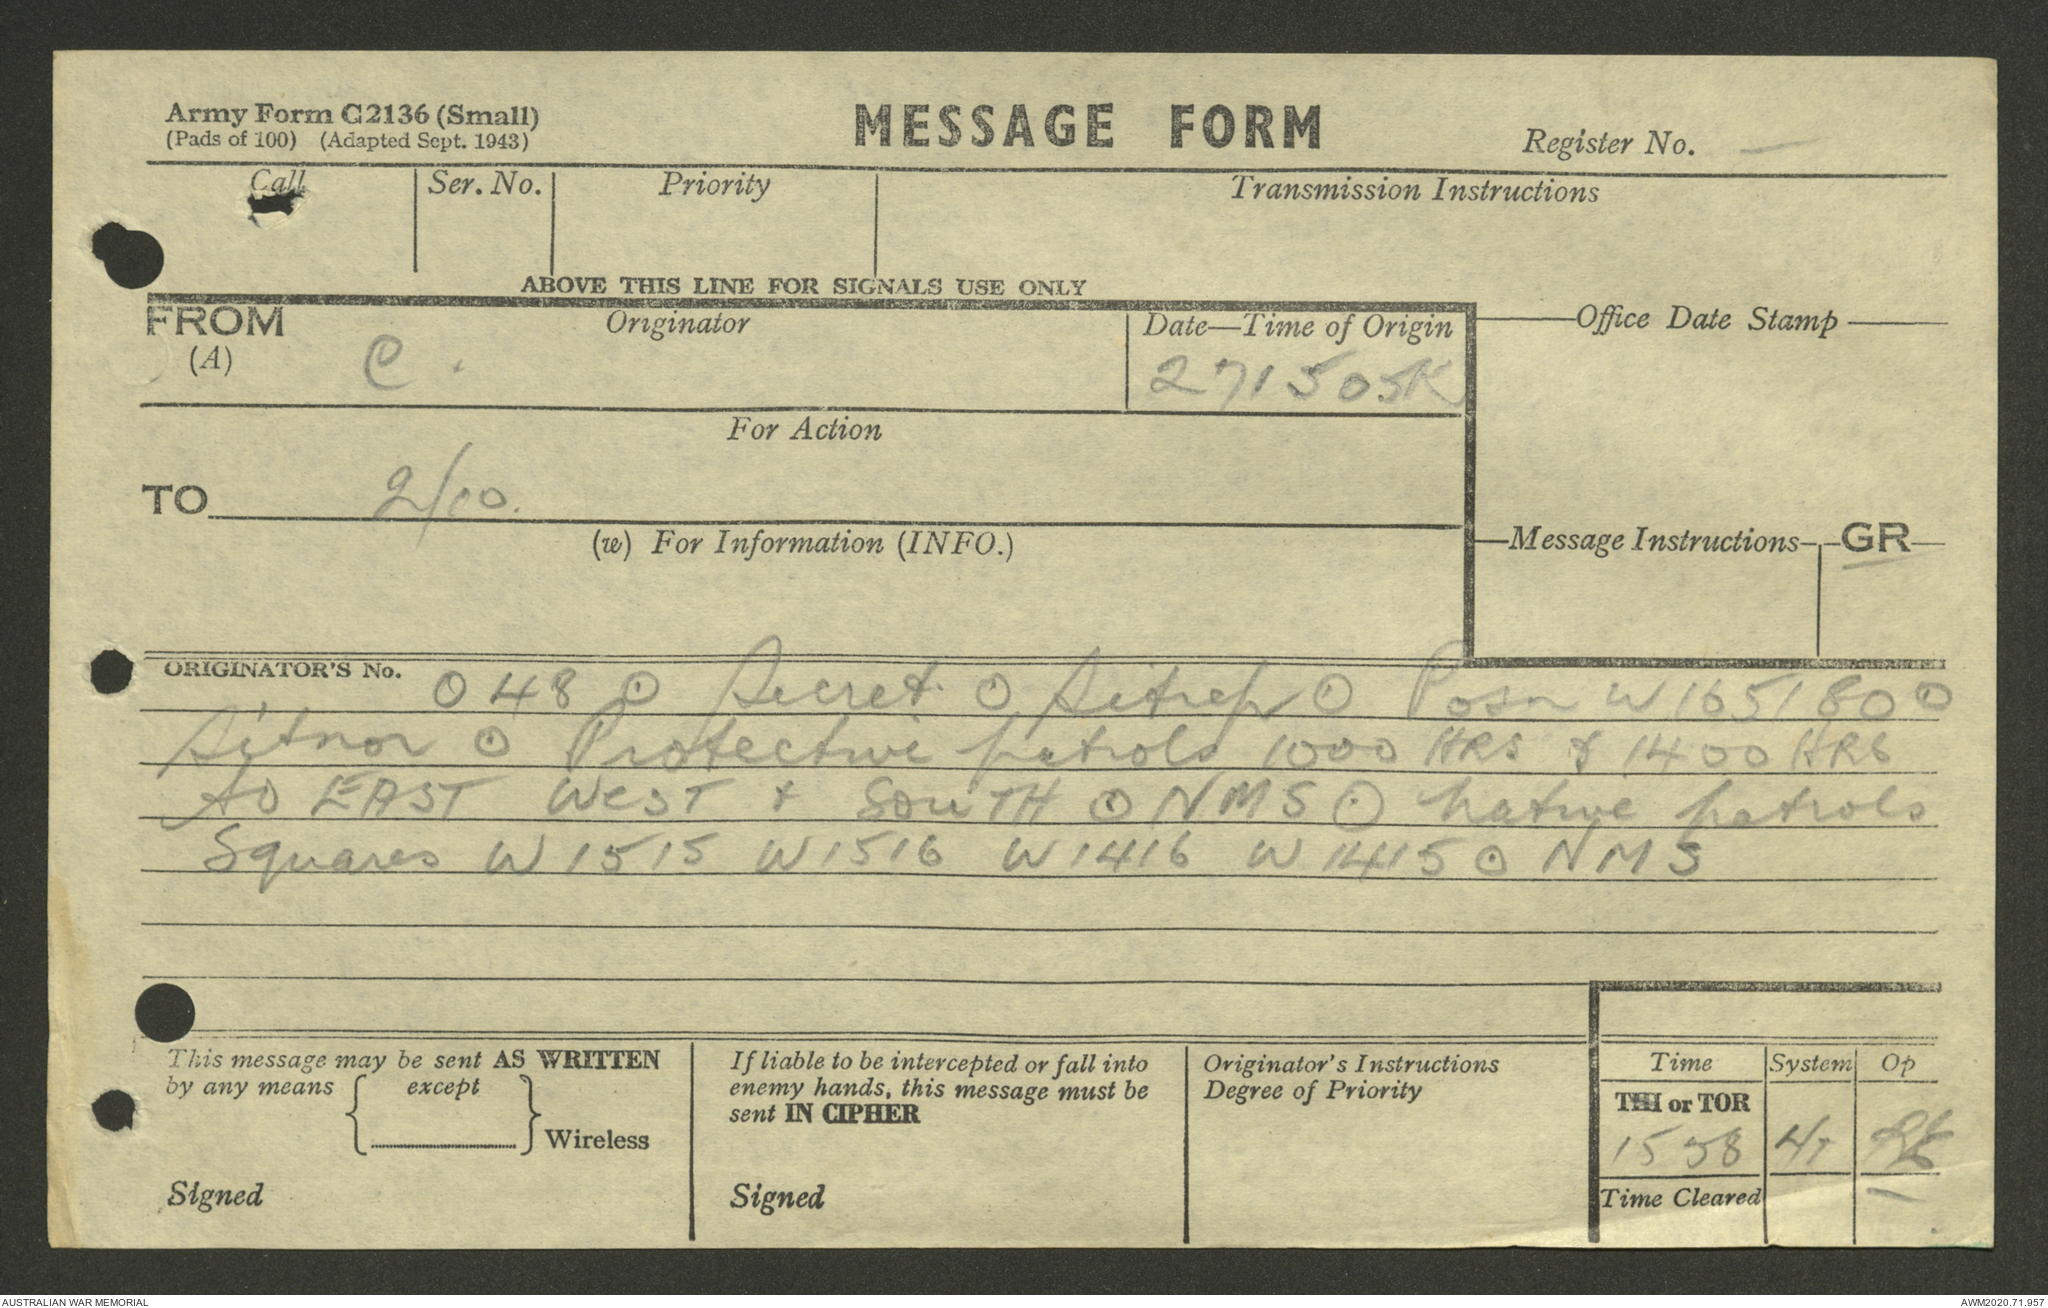 Army Form C2136 (Small)
(Pads of 100) (Adapted Sept. 1943)
MESSAGE FORM
Register No. —
Call
Ser. No.
Priority
Transmission Instructions
ABOVE THIS LINE FOR SIGNALS USE ONLY
FROM
(A)
Originator
C.
Date—Time of Origin
271505K
Office Date Stamp
For Action
TO
2/10.
(w) For Information (INFO.)
Message Instructions
GR
ORIGINATOR'S No.
048 ⊙ Secret ⊙ Sitrep ⊙ Posn W165180 ⊙
Sitnor ⊙ Protective patrols 1000 HRS & 1400 HRS
to EAST WEST & SOUTH ⊙ NMS ⊙ native patrols
Squares W1515 W1516 W1416 W1415 ⊙ NMS
This message may be sent AS WRITTEN
by any means { except } Wireless
Signed
If liable to be intercepted or fall into
enemy hands, this message must be
sent IN CIPHER
Signed
Originator's Instructions
Degree of Priority
Time
System
Op
THI or TOR
1558
Time Cleared
AUSTRALIAN WAR MEMORIAL
AWM2020.71.957